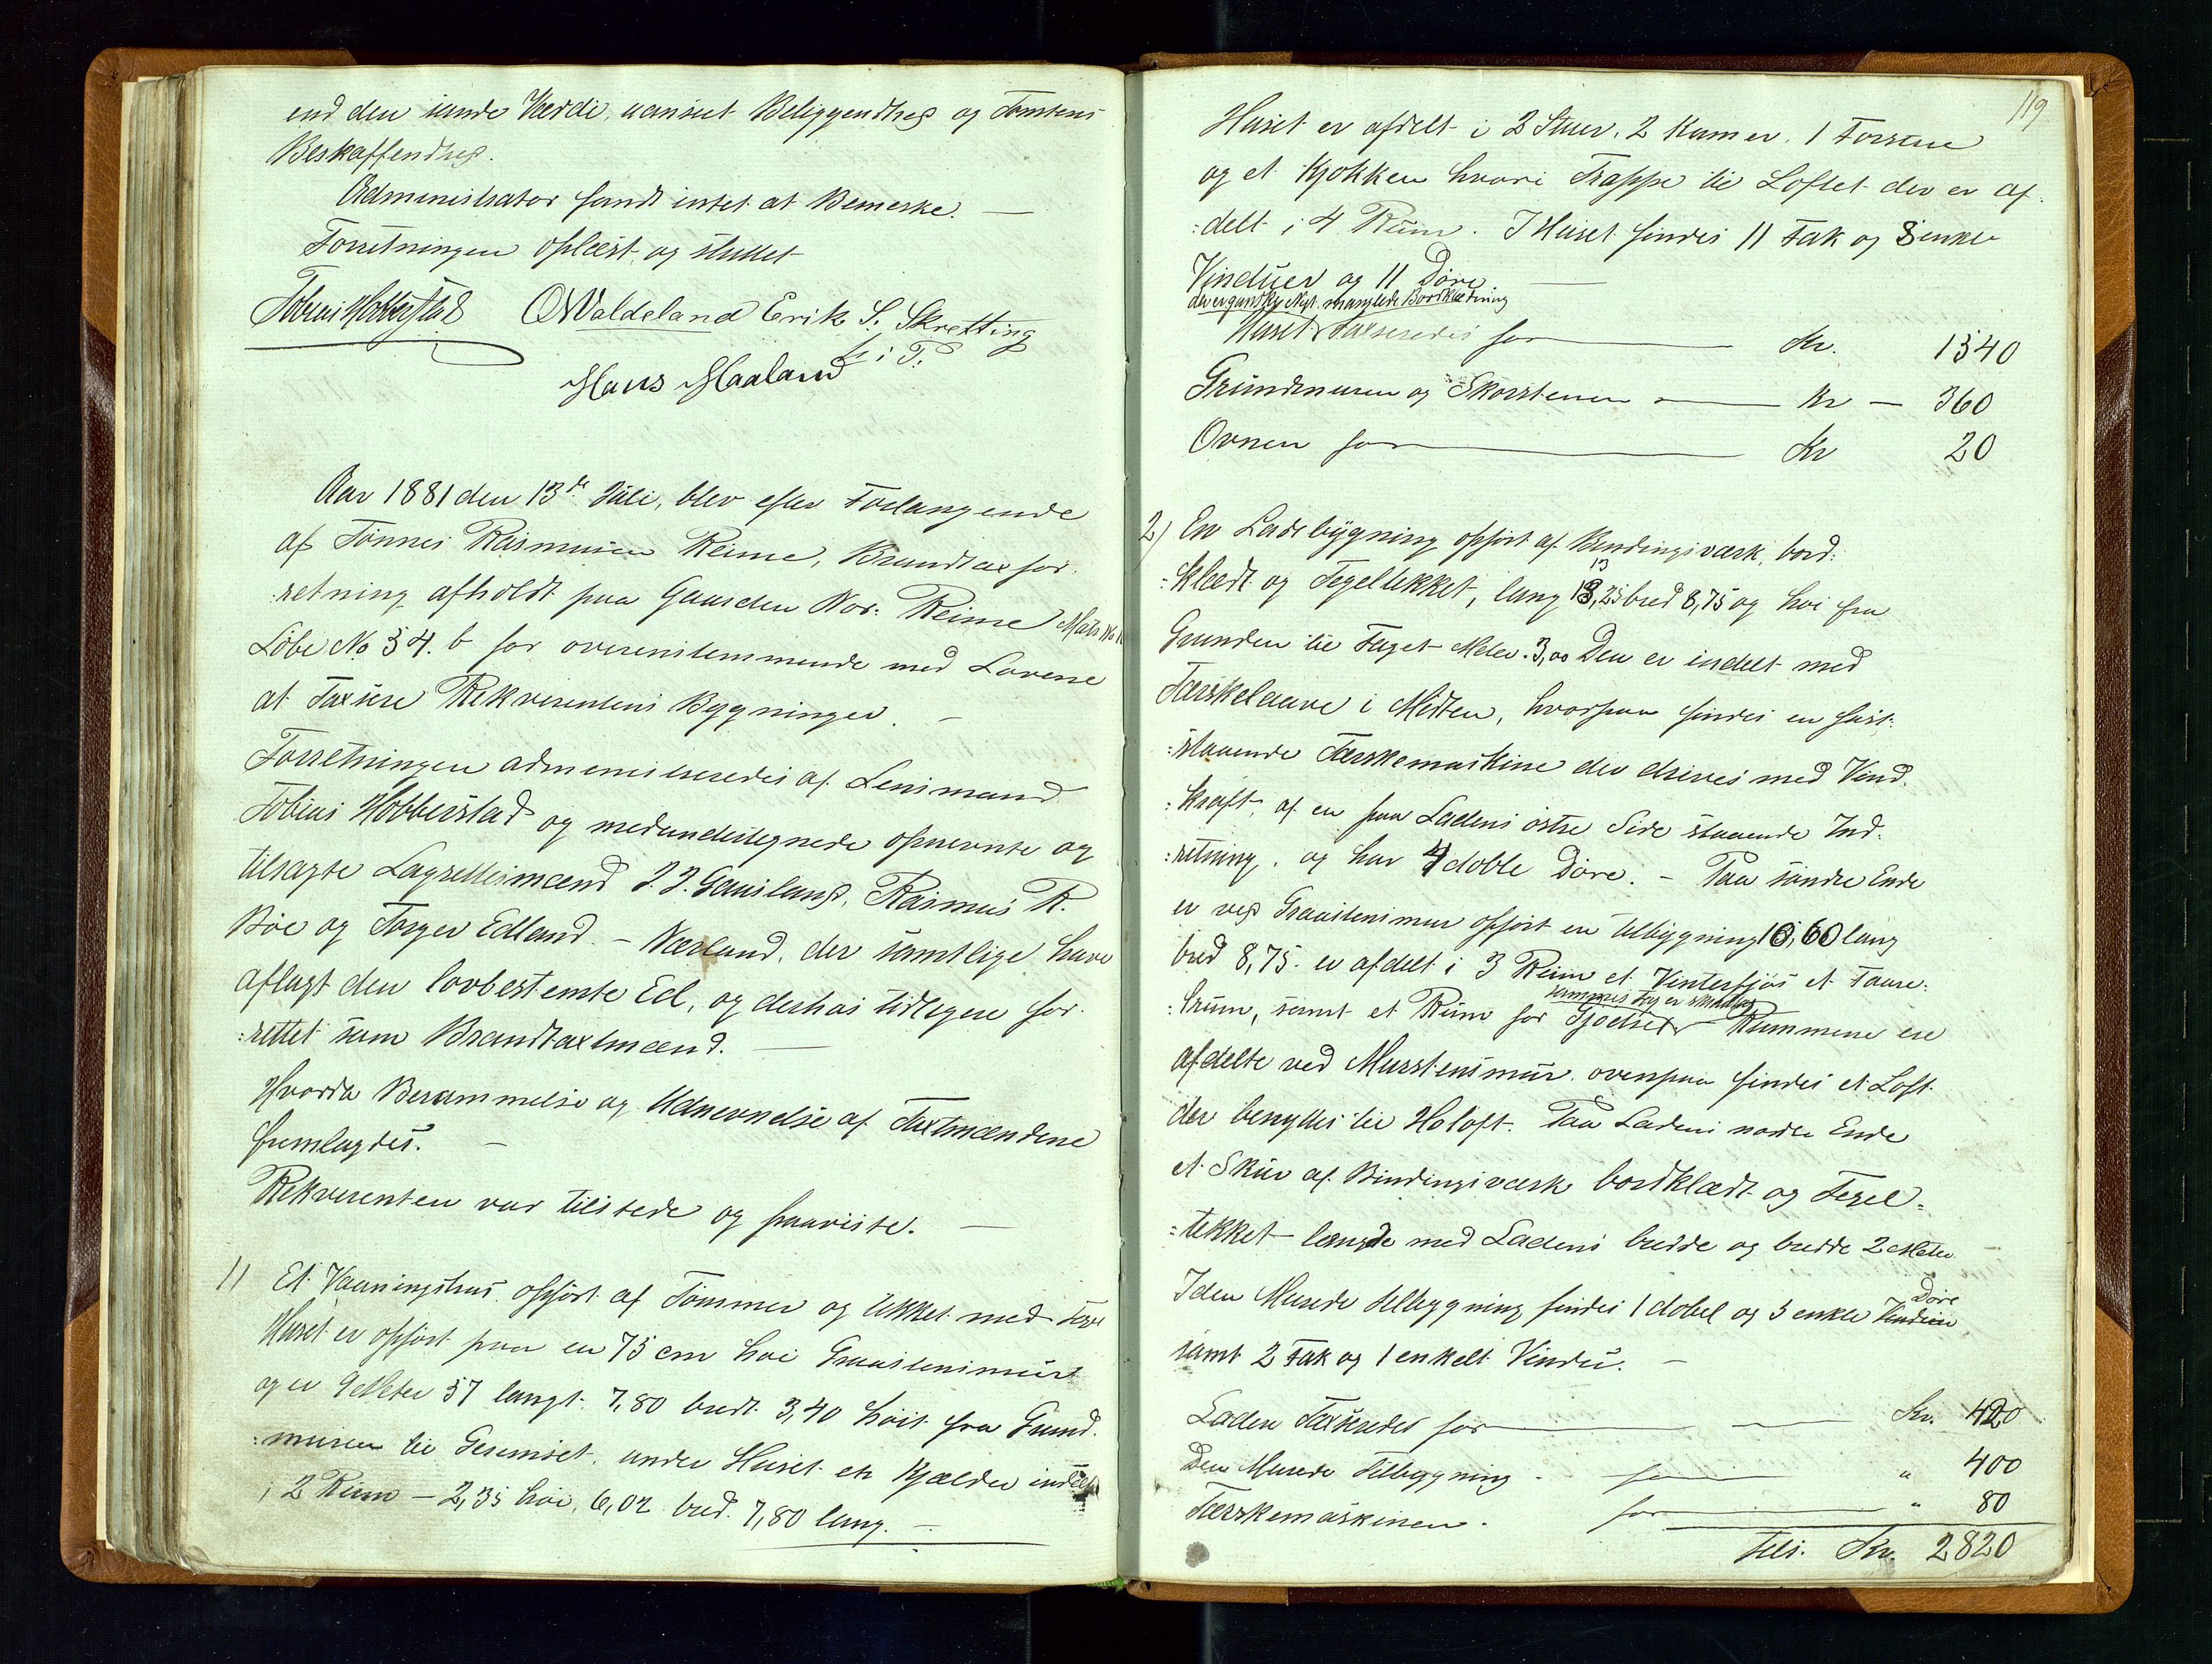 end den sande Værdi, uanset Beliggenhed og Tomtens
Beskaffenhed.
Administrator fandt intet at Bemerke. —
Forretningen oplæst og sluttet
Tobias Hobberstad O Waldeland Erik S. Skretting
Hans Haaland
Aar 1881 den 13de Juli, blev efter Forlangende
af Tønnes Rasmussen Reime, Brandtaxfor-
:retning afholdt paa Gaarden Nor: Reime Matr No
Løbe No 34. b for overenstemmende med Lovene
at Taxere Rekvirentens Bygninger. —
Forretningen administreredes af Lensmand
Tobias Hobberstad og medundertegnede opnevnte og
tilsagte Lagrettesmænd J. J. Gausland, Rasmus R.
Böe og Torger Edland. – Nærland, der samtlige have
aflagt den lovbestemte Ed, og derhos tidligere for-
:rettet som Brandtaxtmænd. —
Hvorda Berammelse og Udnevnelse af Taxtmændene
fremlagdes. —
Rekvirenten var tilstede og paaviste. —
1) Et Vaaningshus opført af Tømmer og tekket med
Huset er opført paa en 75 cm høi Graastensmur
og er 9 Meter 57 langt 7,80 bredt 3,40 høit fra Grund-
:muren til Gesemset, under Huset en Kjælder inddelt
i 2 Rum – 2,35 høi, 6,02 bred. 7,80 lang. —
119
Huset er afdelt i 2 Stuer, 2 Kamer, 1 Forstue
og et Kjøkken hvori Trappe til Loftet der er af-
:delt i 4 Rum. I Huset findes 11 Fak og 3 enkle
Vinduer og 11 Døre. —
der er ganske Nyt. manglede Bordklædning
Huset Taxeredes for — Kr. 1340
Grundmuren og Skorstenen — Kr — 360
Ovnen for — Kr 20
2) En Ladebygning opført af Bindingsværk, bord-
13
:klædt og Tegeltekket, lang 13,25 bred 8,75 og høi fra
Grunden til Taget Meter. 3,00 Den er indelt med
Tærskelaave i Midten, hvorpaa findes en fast-
:staaende Tærskemaskine der drives med Vind-
:kraft, af en paa Ladens østre Side staaende Ind-
:retning, og har 4 doble Døre. – Paa søndre Ende
er ved Graastensmur opført en tilbygning 10,60 lang
bred 8,75. er afdelt i 3 Rum et Vinterfjøs et Faare-
:hrum, samt et Rum for Gjødsel Rummene ere
afdelte ved Murstensmur. ovenpaa findes et Loft
der benyttes til Høloft. Paa Ladens nordre Ende
et Skur af Bindingsværk bordklædt og Tegel-
:tekket længde med Ladens bredde og bredde 2 Meter
I den Murede tilbygning findes 1 dobel og 3 enkle Døre
samt 2 Fak og 1 enkelt Vindu. —
Laden Taxeredes for — Kr. 420
Den Murede Tilbygning for — " 400
Tærskemaskinen for — " 80
tils. Kr. 2820